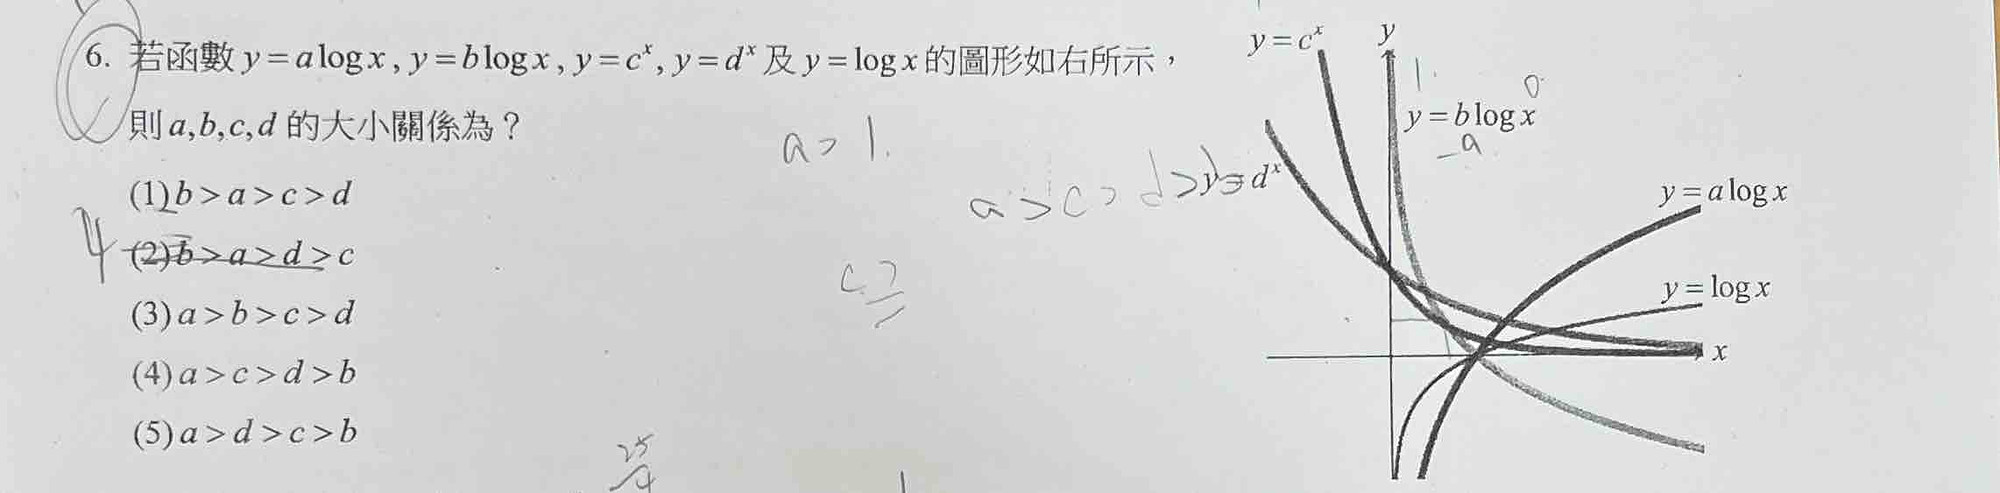 6. 若函數 y = a log x , y = b log x , y = cˣ , y = dˣ 及 y = log x 的圖形如右所示，
則 a,b,c,d 的大小關係為？
(1) b > a > c > d
(2) b > a > d > c
(3) a > b > c > d
(4) a > c > d > b
(5) a > d > c > b
4
a > 1.
a > c > d >
c >
25
4
y = cˣ
y
1.
0
y = b log x
-a
y = dˣ
y = a log x
y = log x
x